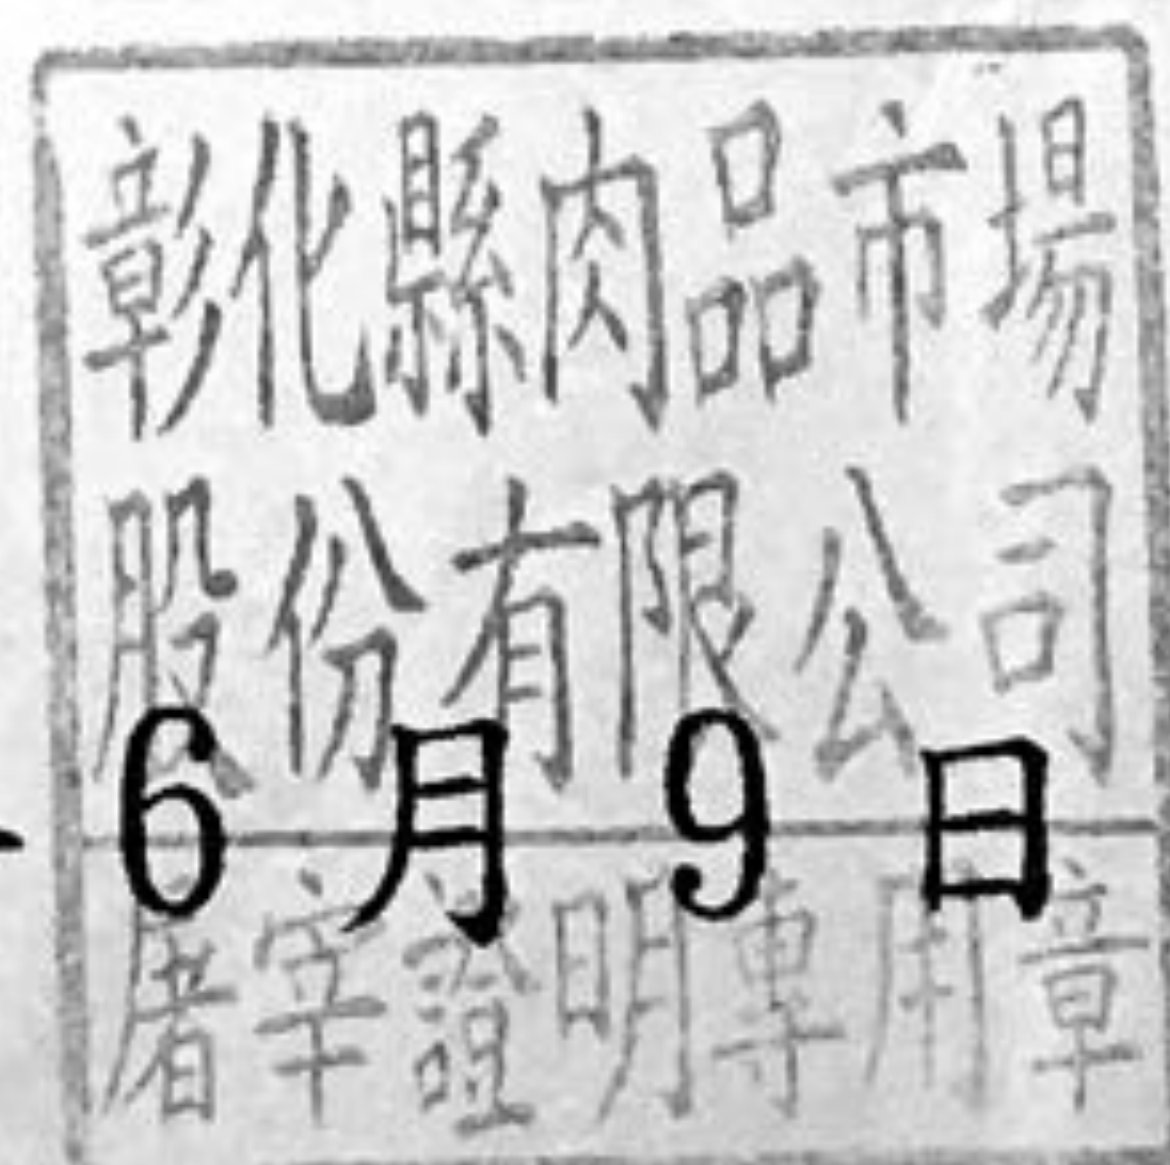 彰化縣肉品市場
股份有限公司
6月9日
屠宰證明專用章